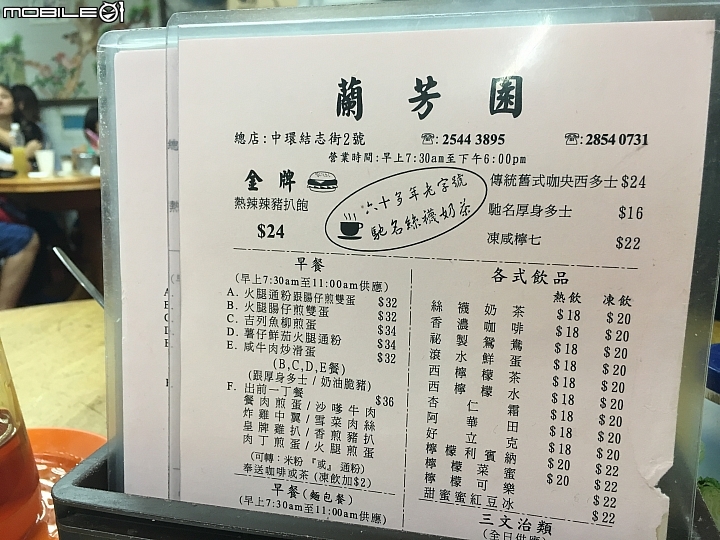 MOBILE01
蘭芳園
總店:中環結志街2號 ☎: 2544 3895 ☎: 2854 0731
營業時間:早上7:30am至下午6:00pm
金牌
熱辣辣豬扒飽
$24
六十多年老字號
馳名絲襪奶茶
傳統舊式咖央西多士 $24
馳名厚身多士 $16
凍咸檸七 $22
早餐
(早上7:30am至11:00am供應)
A. 火腿通粉跟腸仔煎雙蛋 $32
B. 火腿腸仔煎雙蛋 $32
C. 吉列魚柳煎蛋 $34
D. 薯仔鮮茄火腿通粉 $34
E. 咸牛肉炒滑蛋 $32
(B,C,D,E餐)
(跟厚身多士/奶油脆豬)
F. 出前一丁餐 $36
餐肉煎蛋/沙嗲牛肉
炸雞中翼/雪菜肉絲
皇牌雞扒/香煎豬扒
肉丁煎蛋/火腿煎蛋
(可轉:米粉『或』通粉)
奉送咖啡或茶(凍飲加$2)
早餐(麵包餐)
(早上7:30am至11:00am供應)
各式飲品
熱飲 凍飲
絲襪奶茶 $18 $20
香濃咖啡 $18 $20
祕製鴛鴦 $18 $20
滾水鮮蛋 $18 $20
西檸檬茶 $18 $20
西檸檬水 $18 $20
杏仁霜 $18 $20
阿華田 $18 $20
好立克 $18 $20
檸檬利賓納 $20 $22
檸檬菜蜜 $20 $22
檸檬可樂 $20 $22
甜蜜蜜紅豆冰 $22
三文治類
(全日供應)